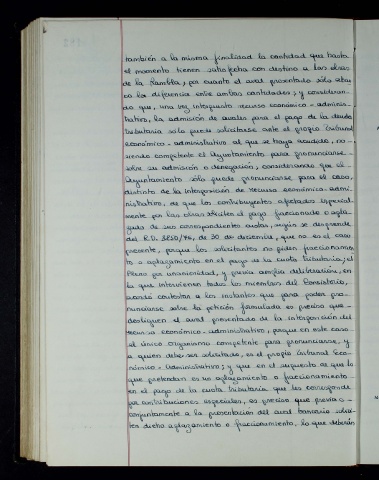 también a la misma finalidad la cantidad que hasta
el momento tienen satisfecha con destino a las obras
de la Rambla, por cuanto el aval presentado sólo abar
ca la diferencia entre ambas cantidades; y consideran-
do que, una vez interpuesto recurso económico-adminis-
trativo, la admisión de avales para el pago de la deuda
tributaria sólo puede solicitarse ante el propio tribunal
económico-administrativo al que se haya acudido, no
siendo competente el Ayuntamiento para pronunciarse
sobre su admisión o denegación, considerando que el
Ayuntamiento sólo puede pronunciarse para el caso,
distinto de la interposición de recurso económico-admi-
nistrativo, de que los contribuyentes afectados especial-
mente por las obras soliciten el pago fraccionado o apla-
zado de sus correspondientes cuotas, según se desprende
del R.D. 3250/76, de 30 de diciembre, que no es el caso
presente, porque los solicitantes no piden fraccionamien
to o aplazamiento en el pago de la cuota tributaria; el
Pleno por unanimidad, y previa amplia deliberación, en
la que intervienen todos los miembros del Consistorio,
acordó contestar a los instantes que para poder pro-
nunciarse sobre la petición formulada es preciso que
desliguen el aval presentado de la interposición del
recurso económico-administrativo, porque en este caso
el único organismo competente para pronunciarse, y
a quien debe ser solicitado, es el propio tribunal eco-
nómico-administrativo; y que en el supuesto de que lo
que pretendan es un aplazamiento o fraccionamiento
en el pago de la cuota tributaria que les corresponde
por contribuciones especiales, es preciso que previa o
conjuntamente a la presentación del aval bancario solici-
ten dicho aplazamiento o fraccionamiento, lo que deberán